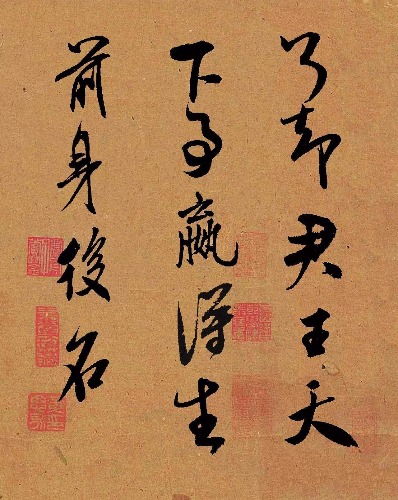 了却君王天
下事赢得生
前身後名